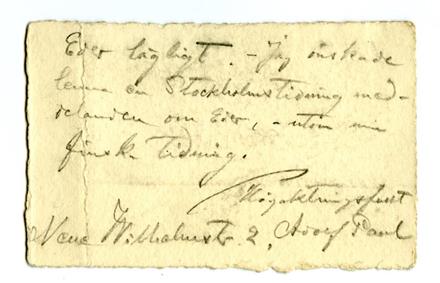 Eder lägligt. – Jag önskade
lemna en Stockholmstidning med-
delanden om Eder, – utom min
finska tidning.
Högaktningsfullt
Neue Wilhelmstr. 2, Adolf Paul